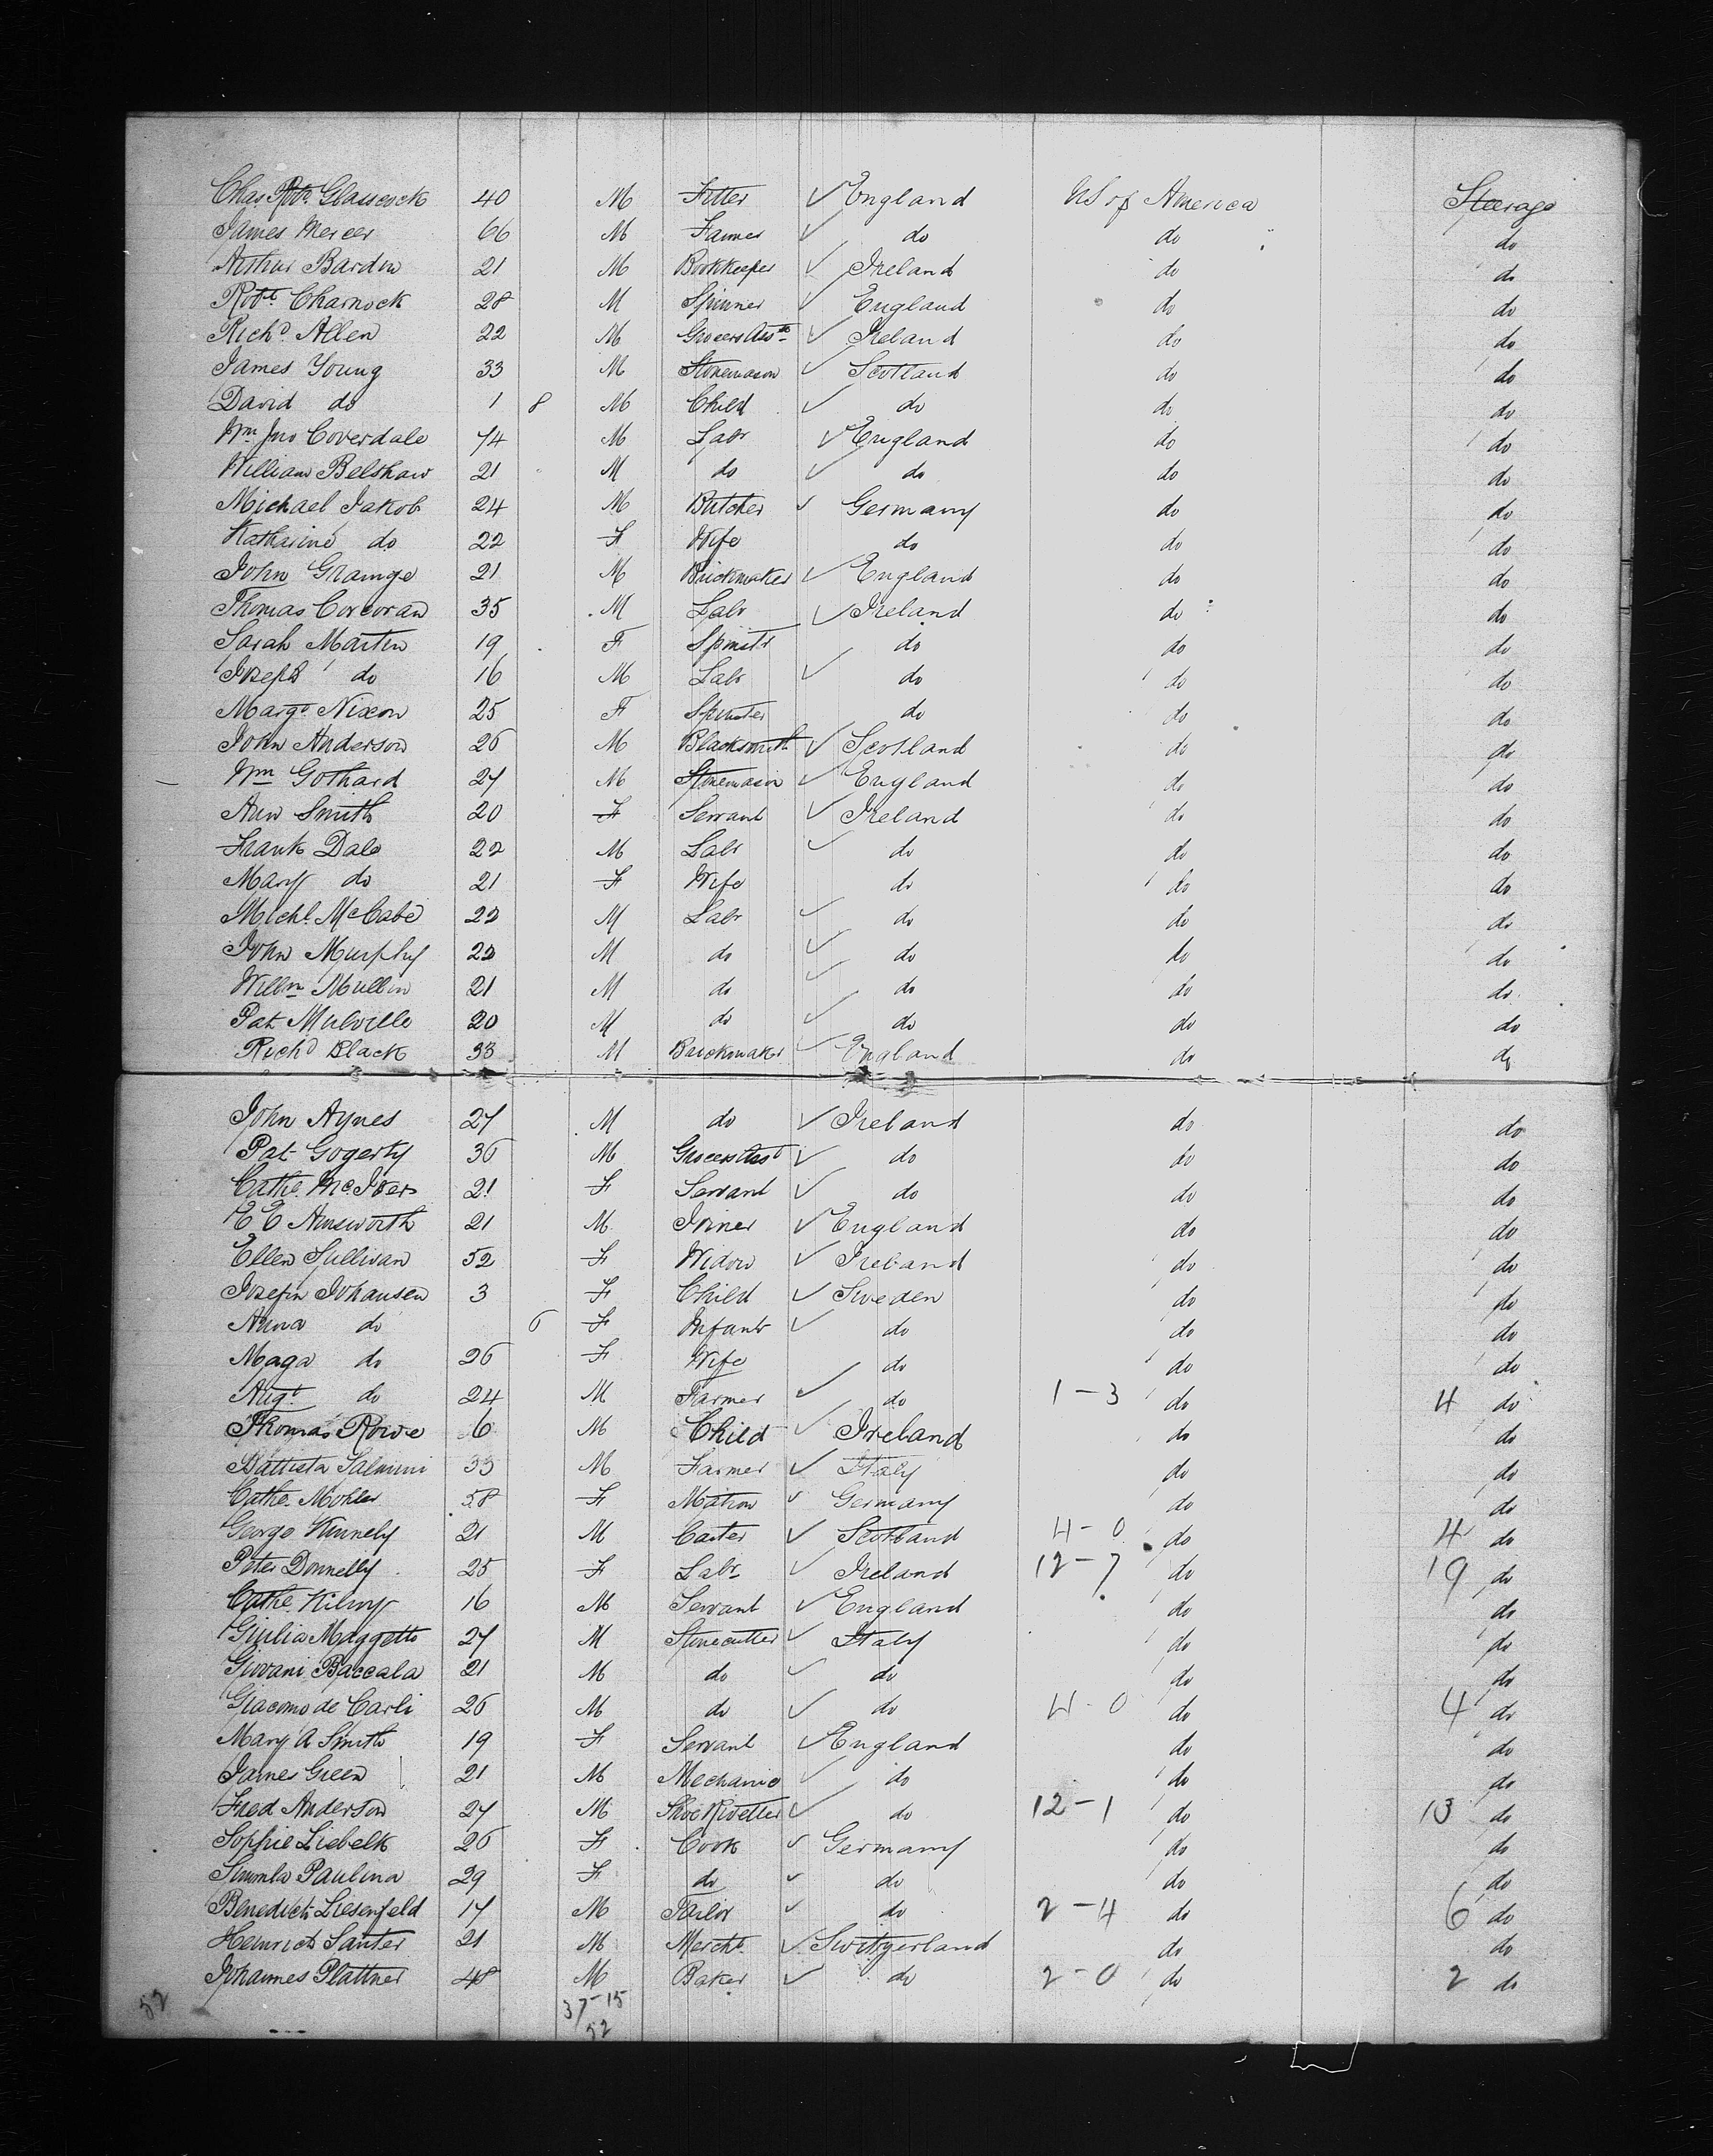 Chas Robt. Glasscock 40 M Fitter ✓ England US of America Steerage
James Mercer 66 M Farmer ✓ do do do
Arthur Bardon 21 M Bookkeeper ✓ Ireland do do
Robt Charnock 28 M Spinner ✓ England do do
Richd Allen 22 M Grocers Asst ✓ Ireland do do
James Young 33 M Stonemason ✓ Scotland do do
David do 1 8 M Child ✓ do do do
Wm Jno Coverdale 74 M Labr ✓ England do do
William Belshaw 21 M do ✓ do do do
Michael Jakob 24 M Butcher ✓ Germany do do
Katharine do 22 F Wife do do do
John Grainge 21 M Brickmaker ✓ England do do
Thomas Corcoran 35 M Labr ✓ Ireland do do
Sarah Martin 19 F Spinstr do do do
Joseph do 16 M Labr ✓ do do do
Margt Nixon 25 F Spinster do do do
John Anderson 26 M Blacksmith ✓ Scotland do do
Wm Gothard 27 M Stonemason ✓ England do do
Ann Smith 20 F Servant ✓ Ireland do do
Frank Dale 22 M Labr ✓ do do do
Mary do 21 F Wife do do do
Michl. McCabe 22 M Labr ✓ do do do
John Murphy 22 M do ✓ do do do
Willm Mullin 21 M do ✓ do do do
Pat Mulville 20 M do ✓ do do do
Richd Black 33 M Brickmaker ✓ England do do
John Aynes 27 M do ✓ Ireland do do
Pat Gogerty 36 M Grocers Asst ✓ do do do
Cathe. McIver 21 F Servant ✓ do do do
E E Ainsworth 21 M Joiner ✓ England do do
Ellen Sullivan 52 F Widow ✓ Ireland do do
Josefin Johansen 3 F Child ✓ Sweden do do
Anna do 6 F Infant ✓ do do do
Maga do 26 F Wife do do do
Augt do 24 M Farmer ✓ do 1-3 do 4 do
Thomas Rowe 6 M Child ✓ Ireland do do
Battista Salmini 33 M Farmer ✓ Italy do do
Cathe. Mohler 58 F Matron ✓ Germany do do
George Kennely 21 M Carter ✓ Scotland 4-0 do 4 do
Peter Donnelly 25 F Labr ✓ Ireland 12-7 do 19 do
Cathe. Kilroy 16 M Servant ✓ England do do
Giulio Maggetto 27 M Stonecutter ✓ Italy do do
Giovani Baccala 21 M do ✓ do do do
Giacomo de Carli 26 M do ✓ do 4-0 do 4 do
Mary A Smith 19 F Servant ✓ England do do
James Green 21 M Mechanic ✓ do do do
Fred Anderson 27 M Shoe Rivetter ✓ do 12-1 do 13 do
Sophie Liebelt 26 F Cook ✓ Germany do do
Paulina 29 F do ✓ do do do
Benedict Liesenfeld 17 M Tailor ✓ do 2-4 do 6 do
Heinrich Santer 21 M Mercht. ✓ Switzerland do do
Johannes Plattner 48 M Baker ✓ do 2-0 do 2 do
52 37-15
52